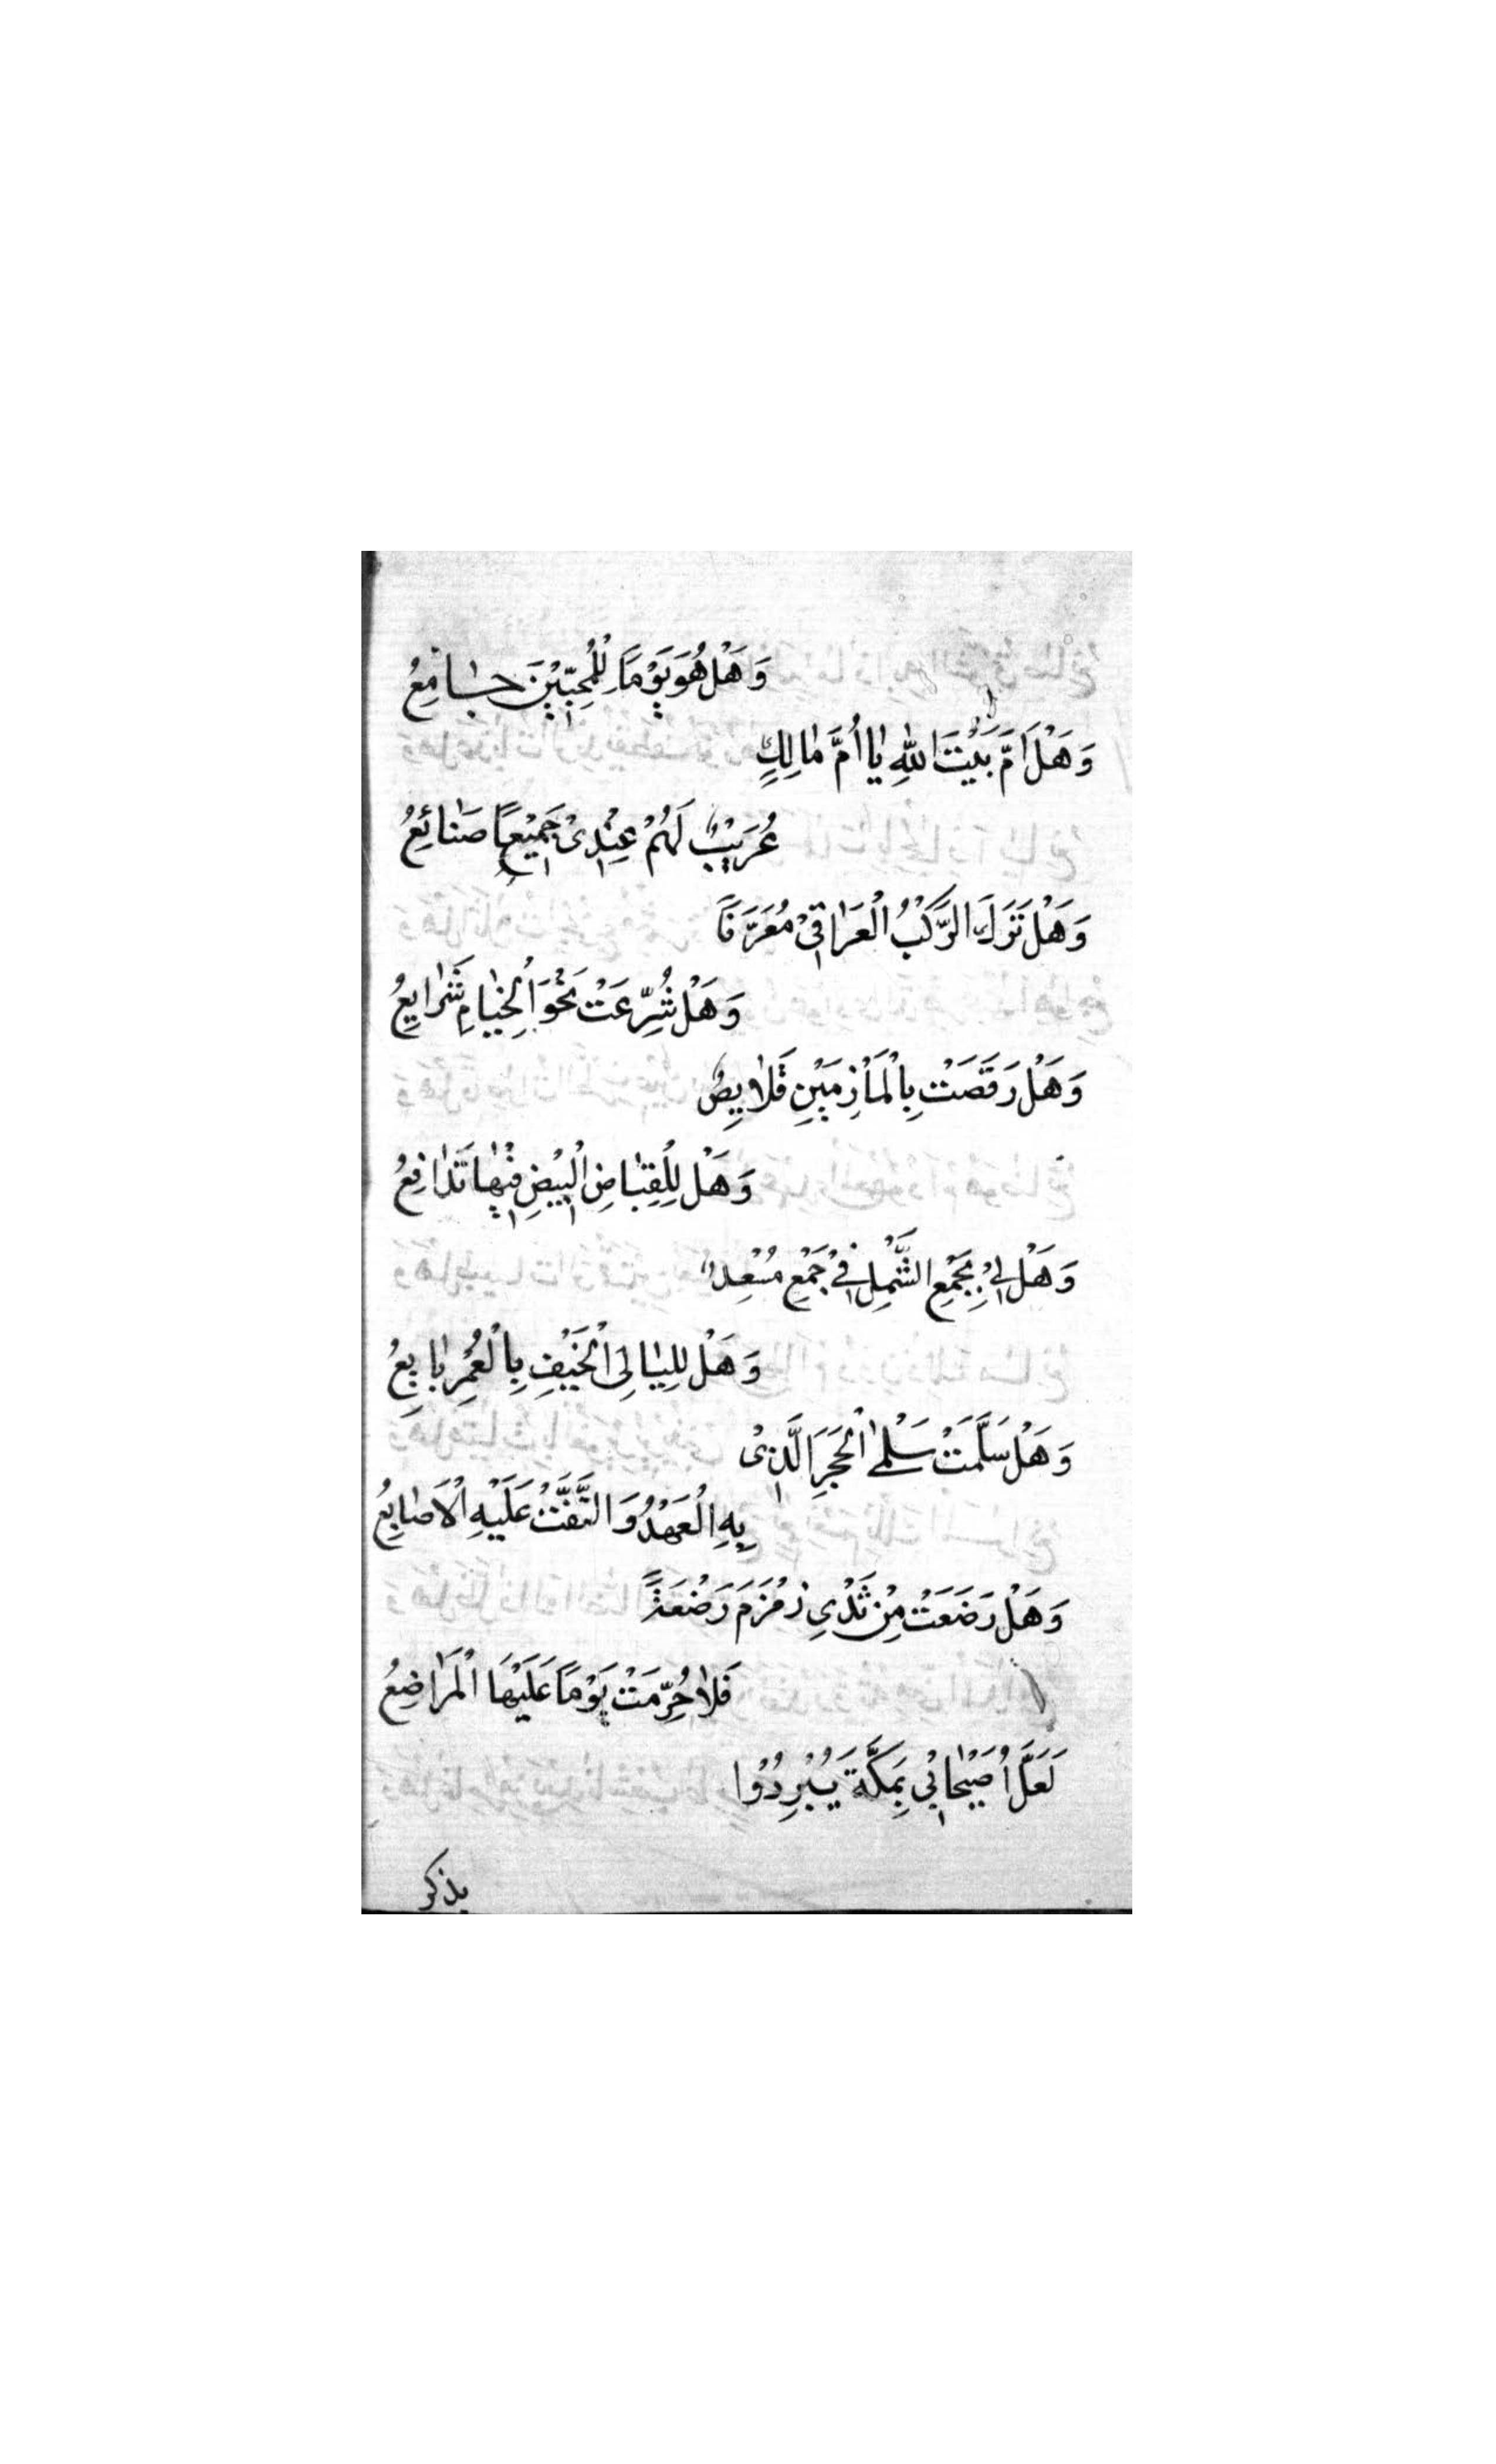 وَهَلْ هُوَ يَوْمًا لِلْمُحِبِّيْنَ جَامِعُ
وَهَلْ اَمَّ بَيْتَ اللّٰهِ يَا اُمَّ مَالِكٍ
عُرَيْبٌ لَهُمْ عِنْدِىْ جَمِيْعًا صَنَائِعُ
وَهَلْ نَزَلَ الرَّكْبُ الْعَرَاقِىْ مُعَرِّفًا
وَهَلْ شُرِّعَتْ نَحْوَ الْخِيَامِ شَرَايِعُ
وَهَلْ رَقَصَتْ بِالْمَأْزِمَيْنِ قَلَايِصُ
وَهَلْ لِلْقِبَابِ الْبِيْضِ فِيْهَا تَدَافِعُ
وَهَلْ لِىْ بِجَمْعِ الشَّمْلِ فِىْ جَمْعِ مُسْعِدٌ
وَهَلْ لِلَيَالِى الْخَيْفِ بِالْعُمْرِ بَايِعُ
وَهَلْ سَلَّمَتْ سَلْمٰى الْحَجَرِ الَّذِىْ
بِهِ الْعَهْدُ وَالْتَفَّتْ عَلَيْهِ الْاَصَابِعُ
وَهَلْ رَضَعَتْ مِنْ ثَدْىِ زَمْزَمَ رَضْعَةً
فَلَا حُرِّمَتْ يَوْمًا عَلَيْهَا الْمَرَاضِعُ
لَعَلَّ اُصَيْحَابِىْ بِمَكَّةَ يُبْرِدُوْا
بذكر